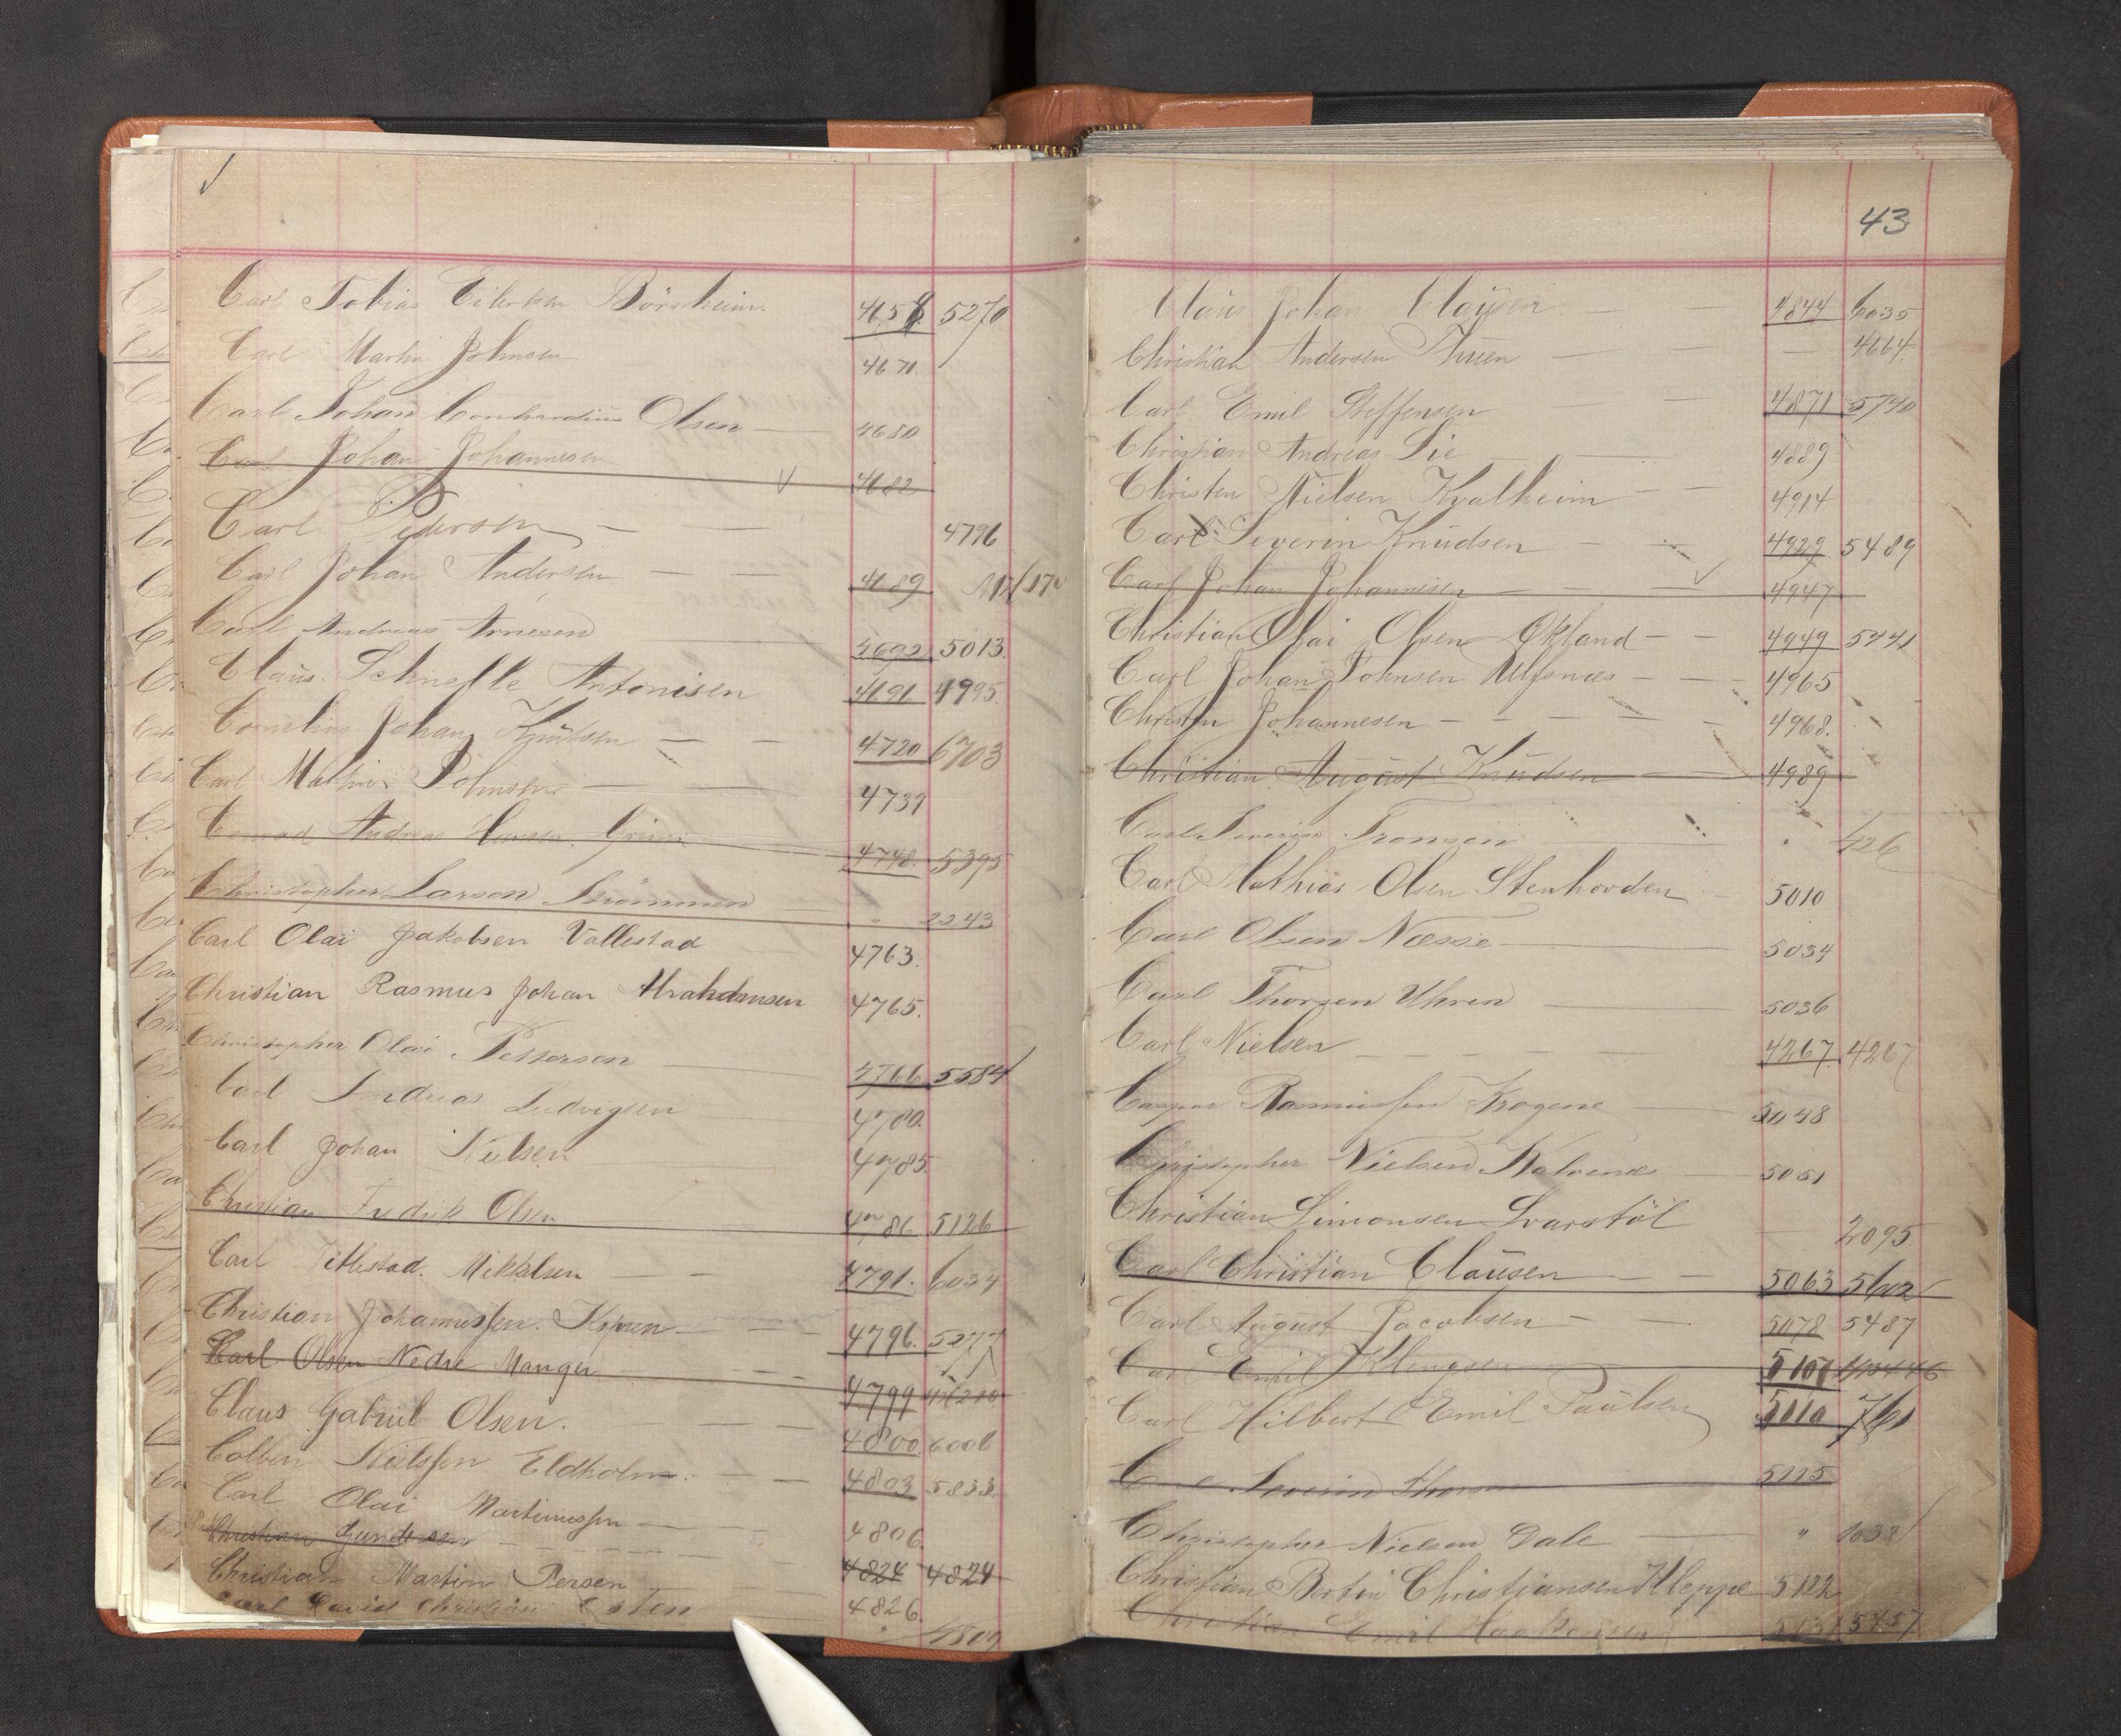 Carl Tobias Eilertsen Börsheim. 4658 5270
Carl Martin Johnsen 4671.
Carl Johan Cornelius Olsen 4680
Carl Johan Johannesen 4682
Carl Pedersen 4796
Carl Johan Andersen 4689
Carl Andreas Arnesen 4692 5013.
Claus Schnelle Antonisen 4191 4995.
Cornelius Johan Knutsen 4720 6703
Carl Mathias Johnsen 4739
Conrad Andreas Hansen 4748. 5395
Christopher Larsen Strömmen 2243
Carl Olai Jakobsen Vallestad 4763.
Christian Rasmus Johan Abrahamsen 4765.
Christopher Olai Pettersen 4766 5584
Carl Andreas Ludvigsen 4780.
Carl Johan Nielsen 4785.
Christian Fredrik Olsen 4786 5126
Carl Titlestad. Mikkelsen 4791. 6034
Christian Johannessen. 4796. 5277
Carl Olsen Nedre Manger 4799
Claus Gabriel Olsen. 4800. 6006
Colben Nielssen Eldholm. 4803 5833.
Carl Olai Martinussen 4806.
Christian Gundersen 4824 4824
Christian Martin Persen 4826.
Carl David Christian 4809
43
Claus Johan Clausen 4844 6035
Christian Andersen Thuen 4664.
Carl Emil Steffensen 4871 5740
Christian Andreas Lie 4889
Christen Nielsen Kvalheim 4914
Carl Severin Knudsen 4929. 5489
Carl Johan Johannesen 4947
Christian Olai Olsen Økland 4949 5441
Carl Johan Johnsen Ulfsnæs 4965
Christen Johannesen 4968.
Christian August Knudsen 4989
Carl Severin Tronsen 426
Carl Mathias Olsen Stenhovden 5010
Carl Olsen Næsse 5034
Carl Thorsen Uhren 5036
Carl Nielsen 4267. 4267
Caspar Rasmussen Krogene 5048
Christopher Nielsen Kalvenes 5051
Christian Simonsen Svarstöl 2095
Carl Christian Clausen 5063 5602
Carl August Jacobsen 5078 5487
Carl Emil
Carl Hilbert Emil Paulsen 5110 761
Severin Thorsen 5115
Christopher Nielsen Dale " 1632
Christian Bertin Christiansen Kleppe 5122
Christian Emil Haakonsen 5131 5457